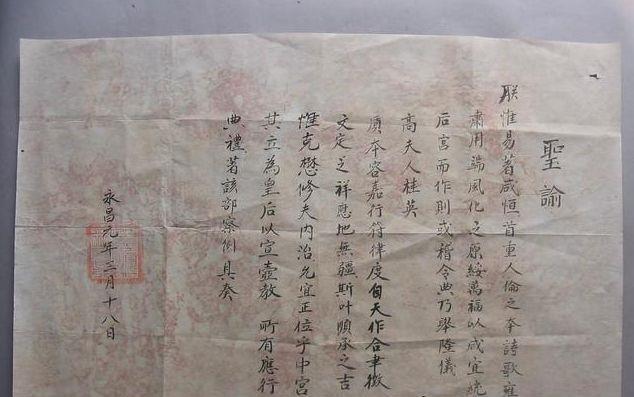 聖諭
朕惟易著咸恒首重人倫之本詩歌雍
肅用端風化之原綏萬福以咸宜統
后宮而作則或稽令典乃舉隆儀
高夫人桂英
質本容嘉行符律度自天作合聿徵
文定之祥應地無疆斯叶順承之吉
惟克懋修夫內治允宜正位乎中宮
其立為皇后以宣壼教 所有應行
典禮著該部察例具奏
永昌元年三月十八日